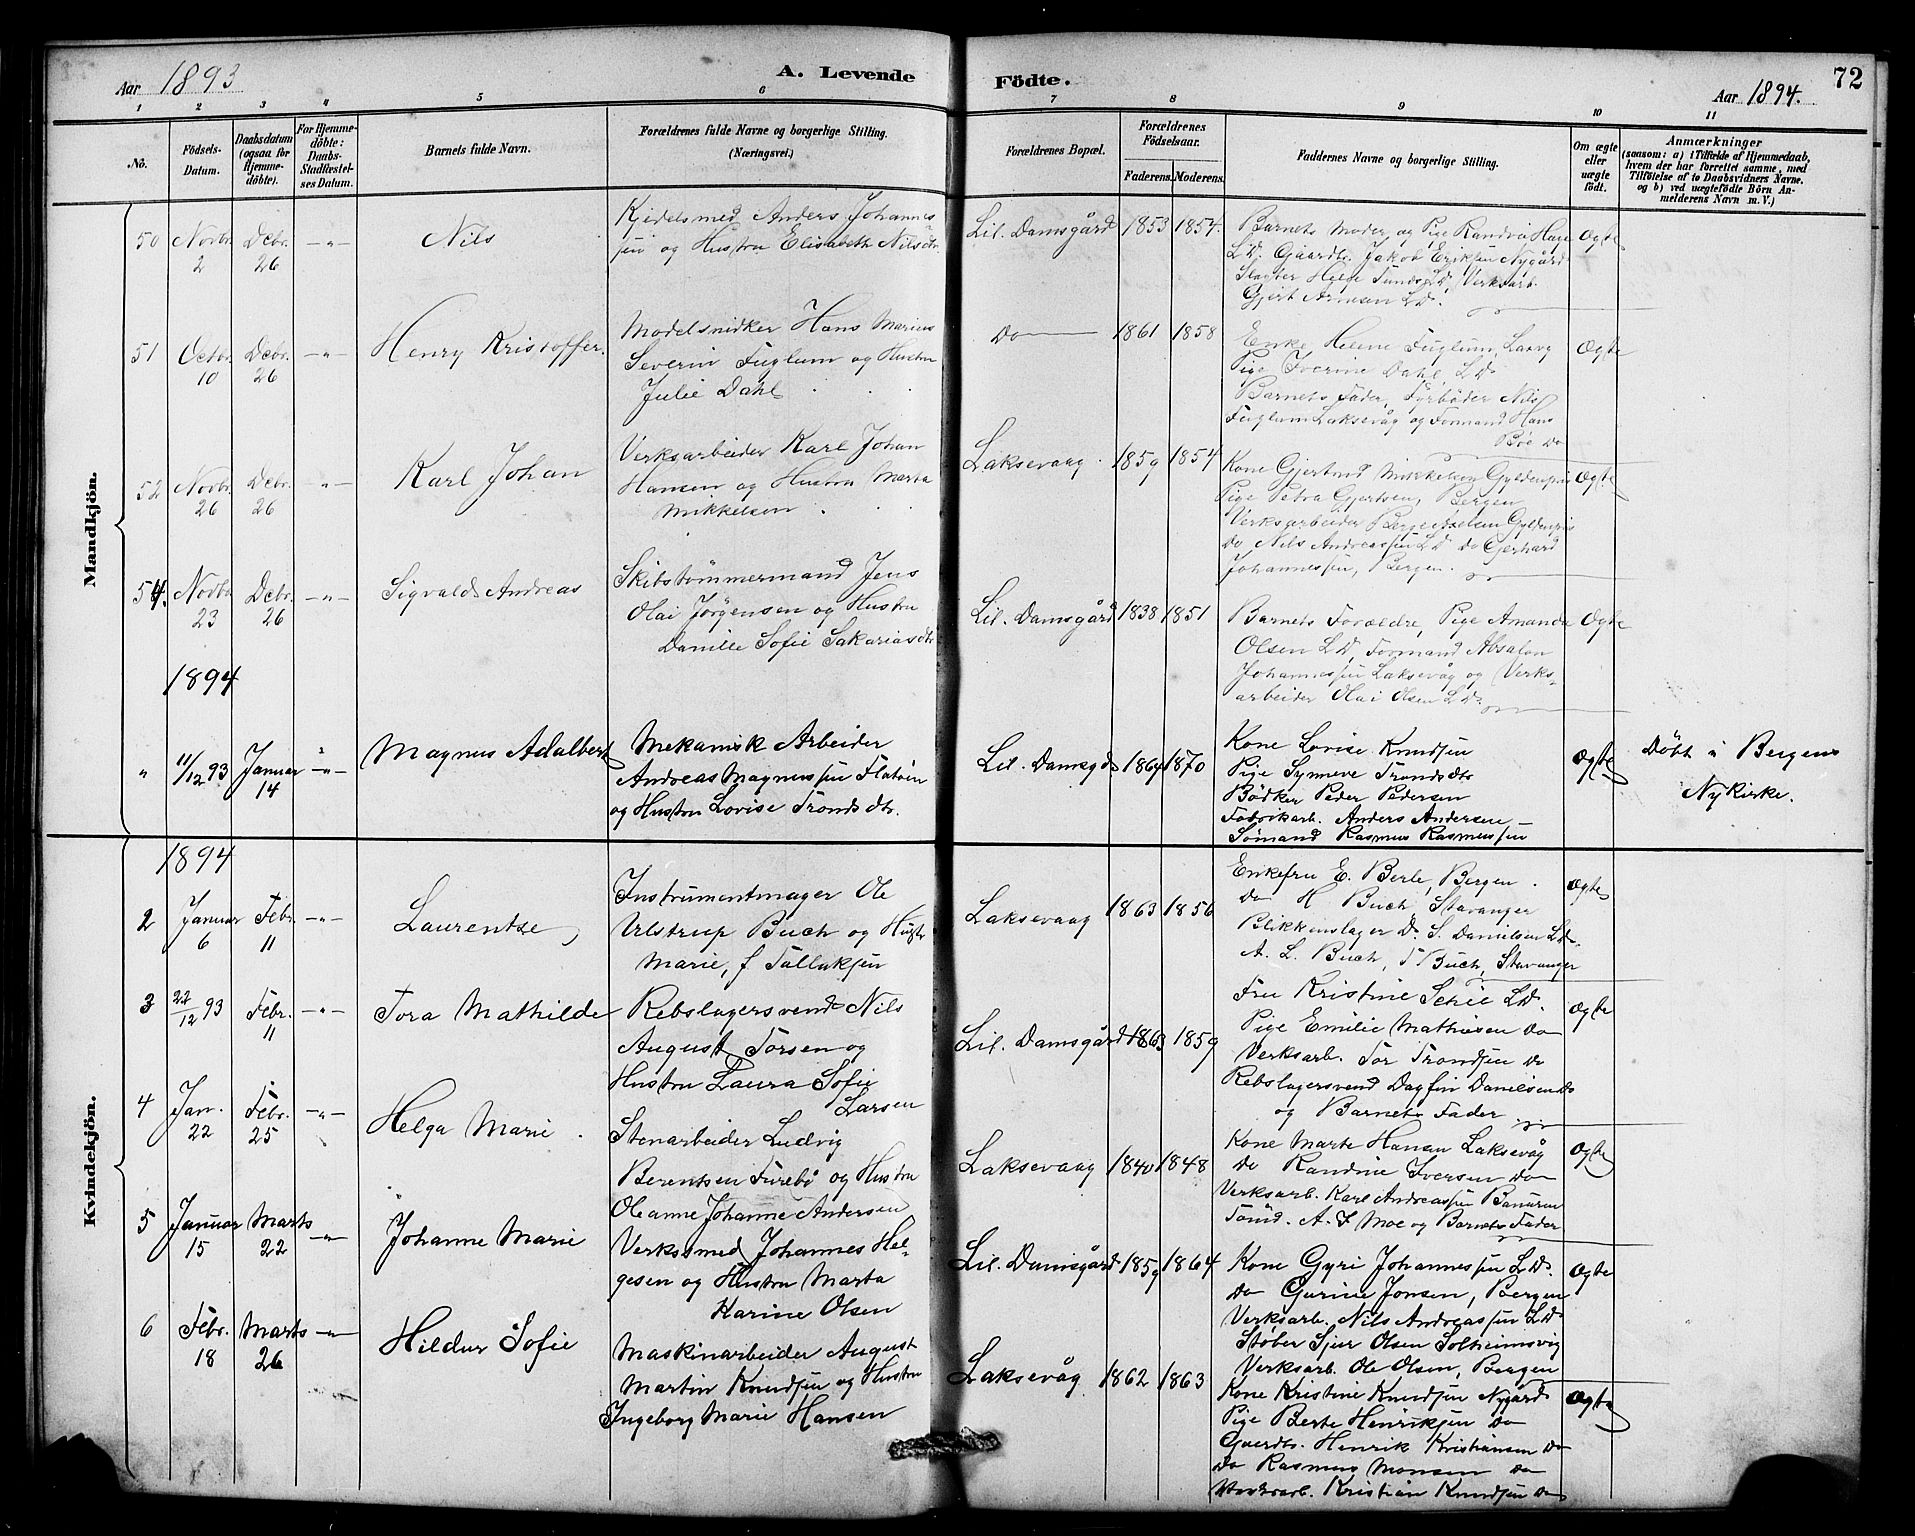 Aar 1893
A. Levende Födte.
Aar 1894.
72
1 2 3 4 5 6 7 8 9 10 11
No.
Födsels-Datum.
Daabsdatum (ogsaa for Hjemme-döbte).
For Hjemme-döbte: Daabs-Stadfæstel-ses Datum.
Barnets fulde Navn.
Forældrenes fulde Navne og borgerlige Stilling. (Næringsvei.)
Forældrenes Bopæl.
Forældrenes Födselsaar.
Faderens. Moderens.
Faddernes Navne og borgerlige Stilling.
Om ægte eller uægte födt.
Anmærkninger
(saasom: a) i Tilfælde af Hjemmedaab, hvem der har forrettet samme, med Tilföielse af to Daabsvidners Navne, og b) ved uægtefödte Börn Anmelderens Navn m. V.)
Mandkjön.
50 Novbr. 2 Dcbr. 26 -„- Nils
Kjedelsmed Anders Johannes-
sen og Hustru Elisabeth Nilsdtr.
Lil. Damsgård 1853 1854.
Barnets Moder og Pige Randvei Hage
LD. Gaardbr. Jakob Eriksen Nygård
Slagter Helge Tunes LD, Verksarb.
Gjert Arnesen LD.
Ægte
51 Octbr. 10 Dcbr. 26 -„- Henry Kristoffer.
Modelsnidker Hans Marius
Severin Fuglum og Hustru
Julie Dahl
Do 1861 1858
Enke Helene Fuglum, Laxvg
Pige Iverine Dahl, LD.
Barnets Fader, Forbøder Nils
Fuglum Laksevåg og Formand Hans
Bøe Do
Ægte
52 Novbr. 26 Dcbr. 26 -„- Karl Johan
Verksarbeider Karl Johan
Hansen og Hustru Marta
Mikkelsen
Laksevaag. 1859 1854
Kone Gjertrud Mikkelsen Gyldenpris
Pige Petra Gjertsen, Bergen
Verksarbeider Berge Askelsen Gyldenpris
Do Nils Andreassen LD Do Gerhard
Johannessen, Bergen.
Ægte
54. Novbr. 23 Dcbr. 26 -„- Sigvald Andreas
Skibstømmermand Jens
Olai Jørgensen og Hustru
Danille Sofie Sakariasdtr.
Lil. Damsgård 1838 1851
Barnets Forældre, Pige Amanda
Olsen LD, Formand Absalon
Johannessen Laksevåg og Verks-
arbeider Olai Olsen LD.
Ægte
1894
„ 11/12 93 Januar 14 -„- Magnus Adalbert
Mekanisk Arbeider
Andreas Magnussen Flatøen
og Hustru Lovise Trondsdtr.
Lil. Damsgd 1869 1870
Kone Lovise Knudsen
Pige Synneve Trondsdtr
Bødker Peder Pedersen
Fabrikarb. Anders Andersen
Sømand Rasmus Rasmussen
Ægte
Døbt i Bergens
Nykirke.
Kvindekjön.
1894
2 Januar 6 Febr. 11 -„- Laurentze
Instrumentmager Ole
Ulstrup Buch og Hustr
Marie, f Tallaksen
Laksevaag 1863 1856
Enkefru E. Berle, Bergen.
Do H Buch Stavanger
Blikkenslager D. S. Danielsen LD.
A. L. Buch, T Buch, Stavanger
Ægte
3 22/12 93 Febr. 11 -„- Tora Mathilde
Rebslagersvend Nils
August Torsen og
Hustru Laura Sofie
Larsen
Lil. Damsgård 1863 1859
Fru Kristine Schie LD.
Pige Emilie Mathiesen Do
Verksarb. Tor Trondsen Do
Rebslagersvend Dagfin Danielsen Do
og Barnets Fader
Ægte
4 Jan. 22 Febr. 25 -„- Helga Marie.
Stenarbeider Ludvig
Berentsen Furebø og Hustru
Oleanne Johanne Andersen
Laksevaag 1840 1848
Kone Marte Hansen Laksevåg
Do Randine Iversen Do
Verksarb. Karl Andreassen
Tømd. A. J Moe og Barnets Fader
Ægte
5 Januar 15 Marts 22 -„- Johanne Marie
Verkssmed Johannes Hel-
gesen og Hustru Marta
Karine Olsen
Lil. Damsgård 1859 1864
Kone Gyri Johannessen LD.
Do Gurine Jonsen, Bergen
Verksarb. Nils Andreassen LD
Støber Sjur Olsen Solheimsvig
Verksarb. Ole Olsen, Bergen
Ægte
6 Febr. 18 Marts 26 -„- Hildur Sofie
Maskinarbeider August
Martin Knudsen og Hustru
Ingeborg Marie Hansen
Laksevåg 1862 1863
Kone Kristine Knudsen Nygård
Pige Berte Henriksen Do
Gaardbr. Henrik Kristiansen Do
Do Rasmus Monsen Do
Verksarb. Kristian Knudsen Do
Ægte